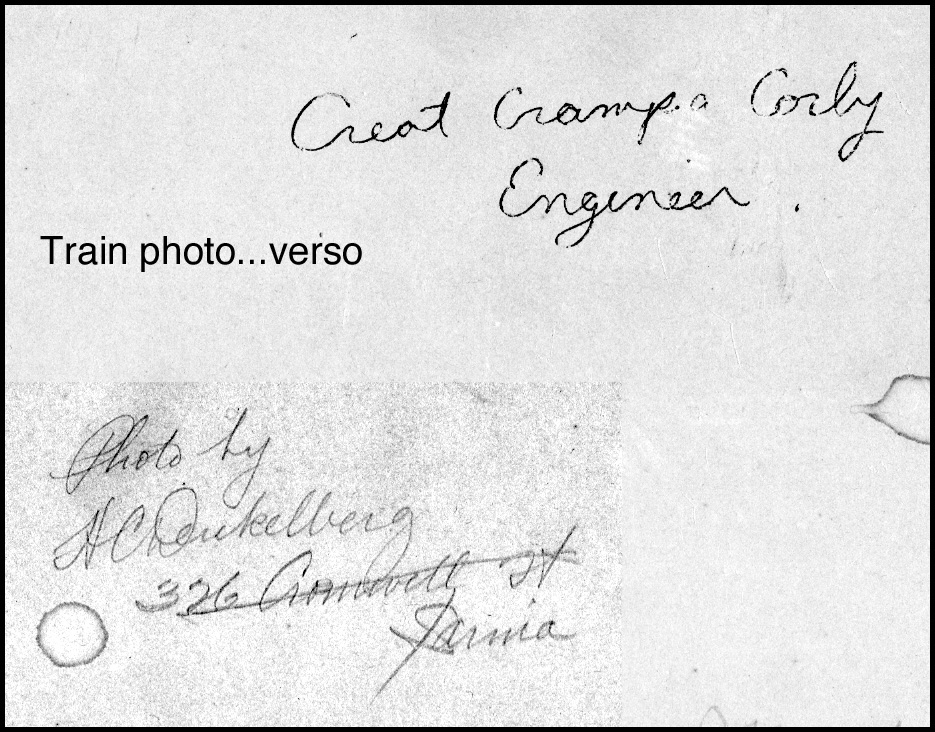 Great Grampa Corby
Engineer.
Train photo...verso
Photo by
H C Dunkelberg
326 Cromwell St
Sarnia